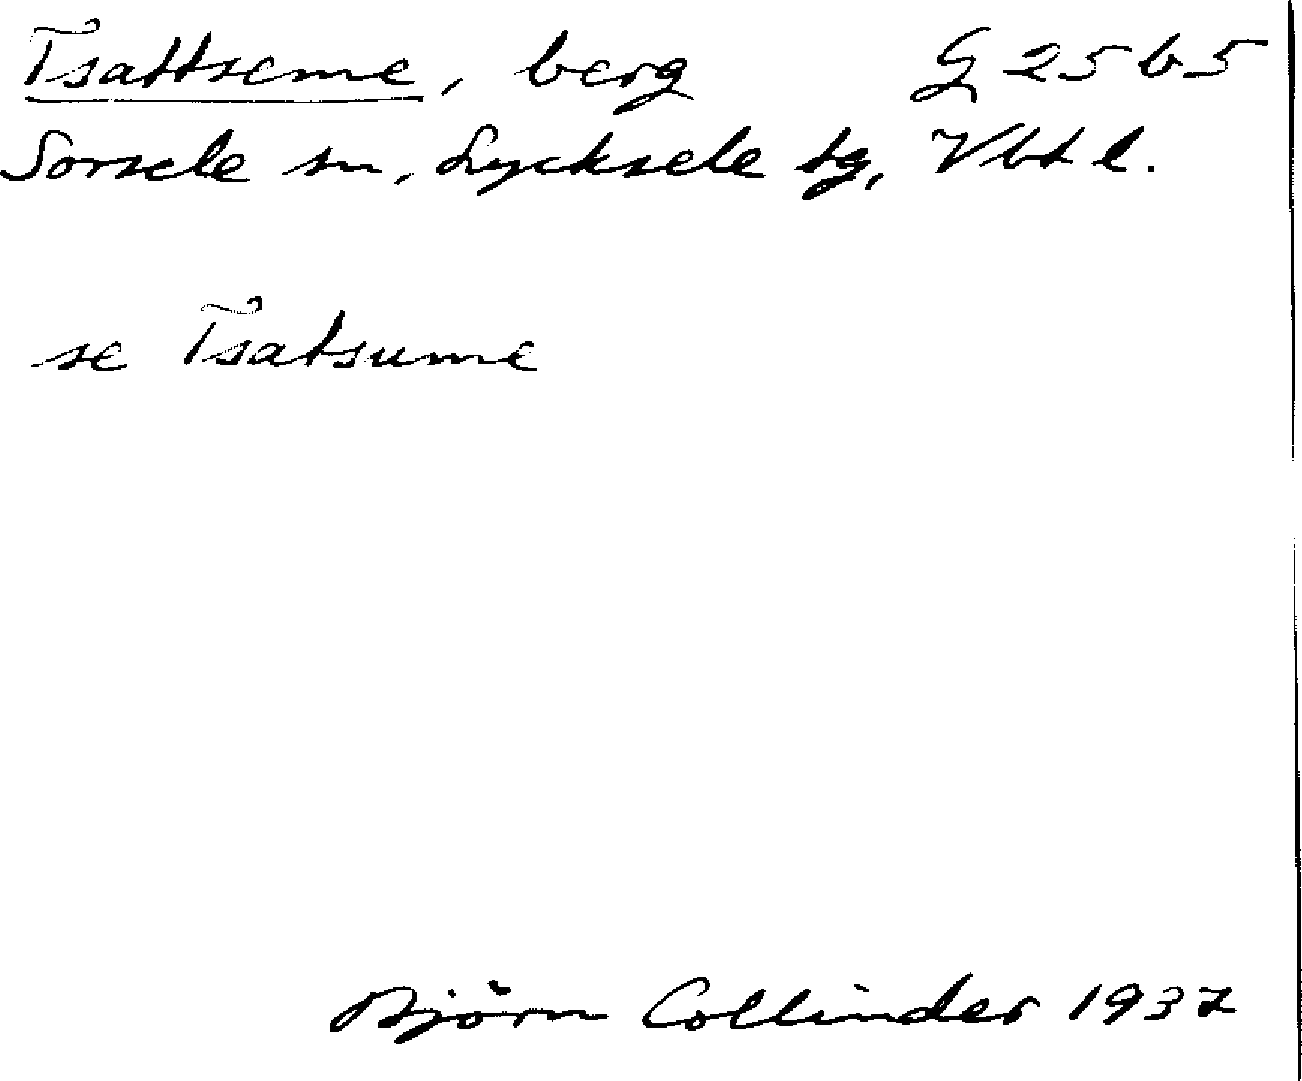 Tsattseme, berg G 25 b 5
Sorsele sn, Lycksele tg, Vbt l.
se Tsatsume
Björn Collinder 1937